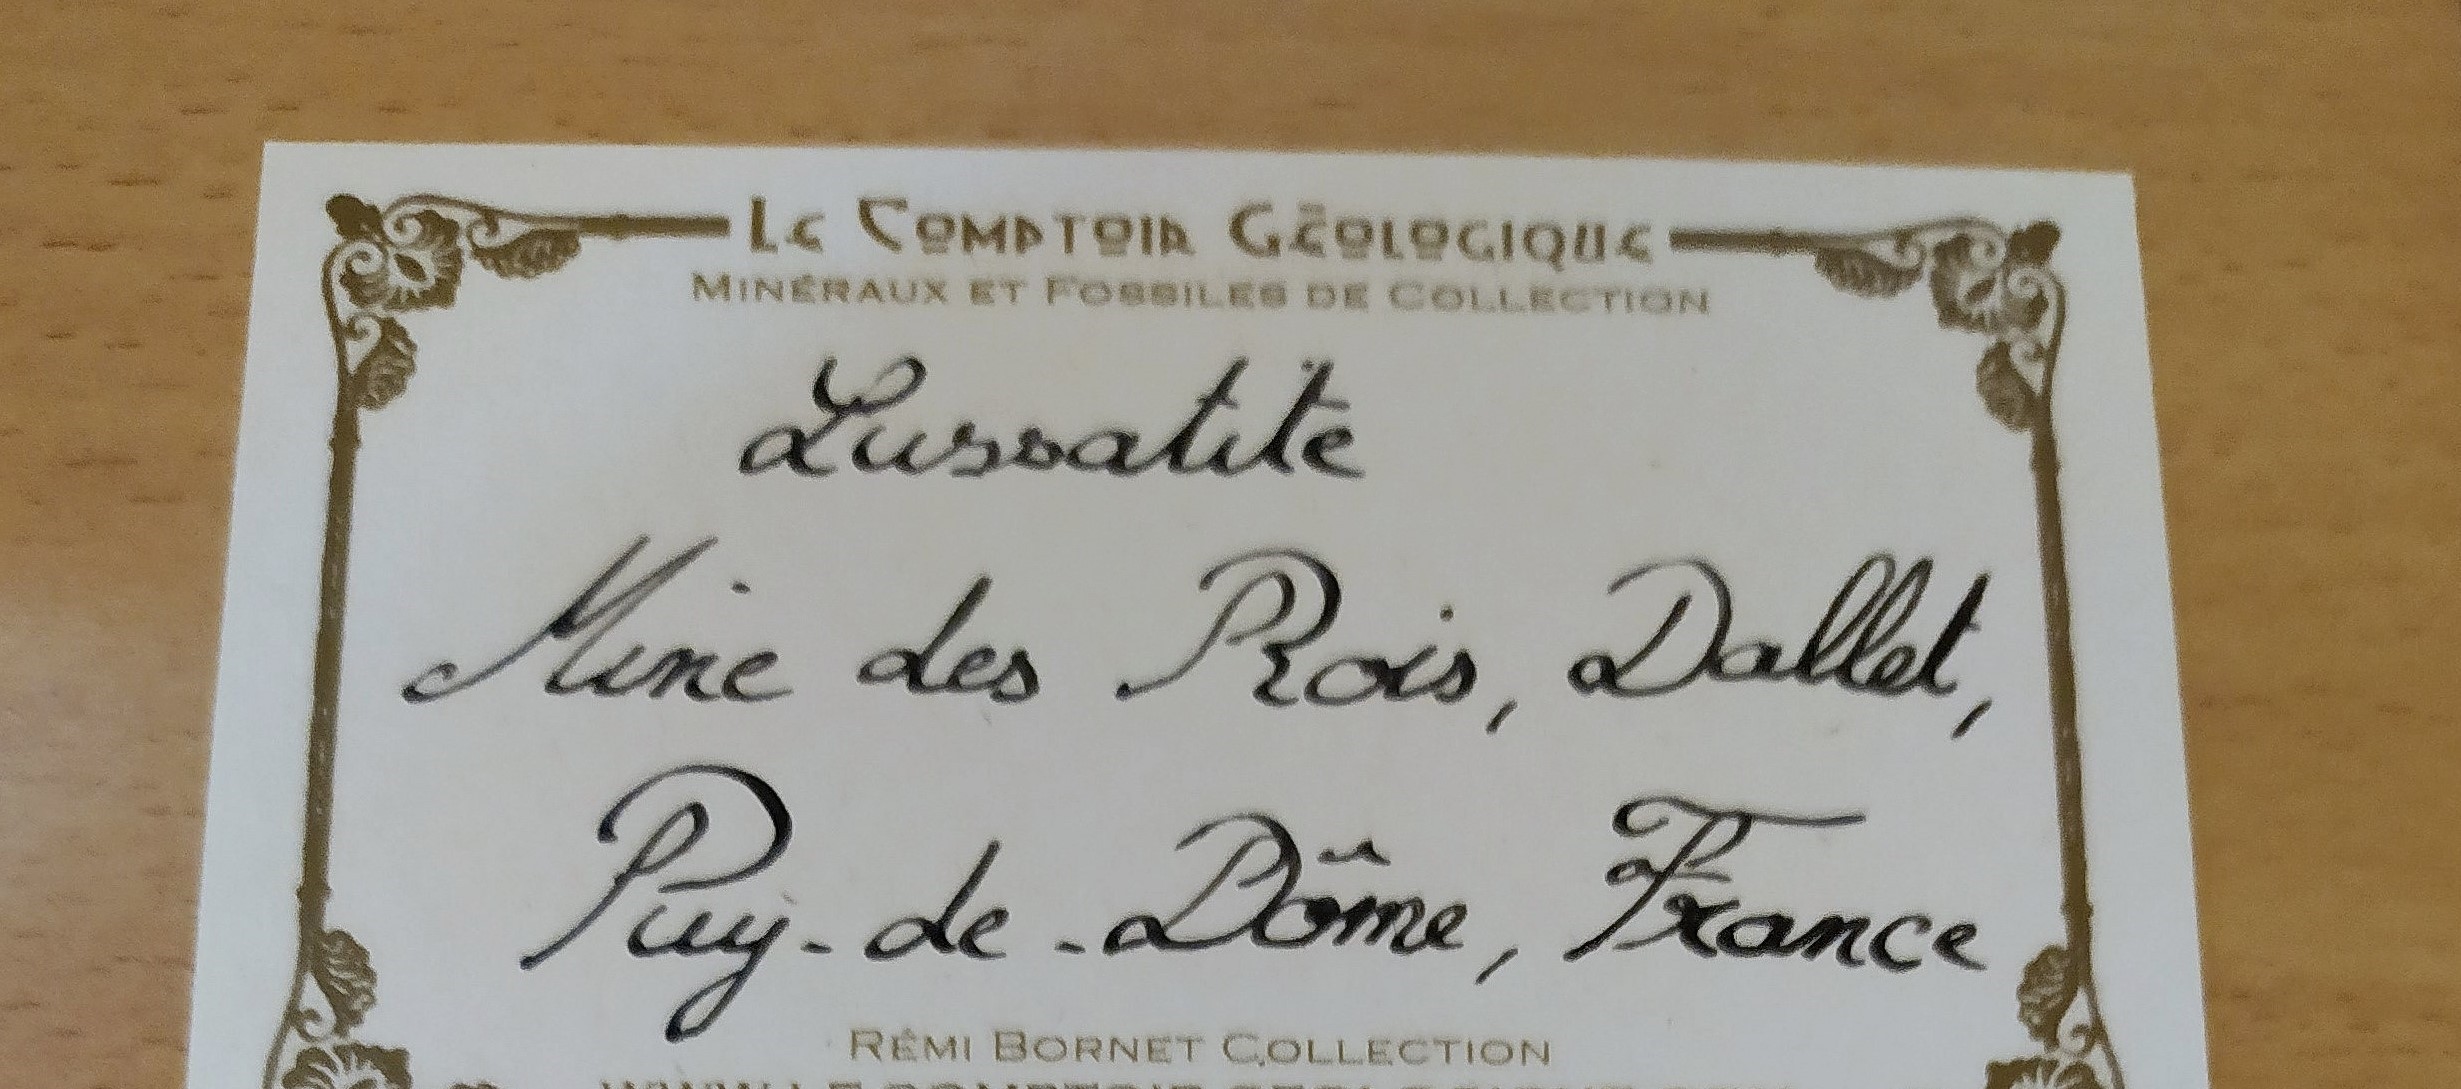 Le Comptoir Géologique
Minéraux et Fossiles de Collection
Lussatite
Mine des Rois, Dallet,
Puy-de-Dôme, France
Rémi Bornet Collection